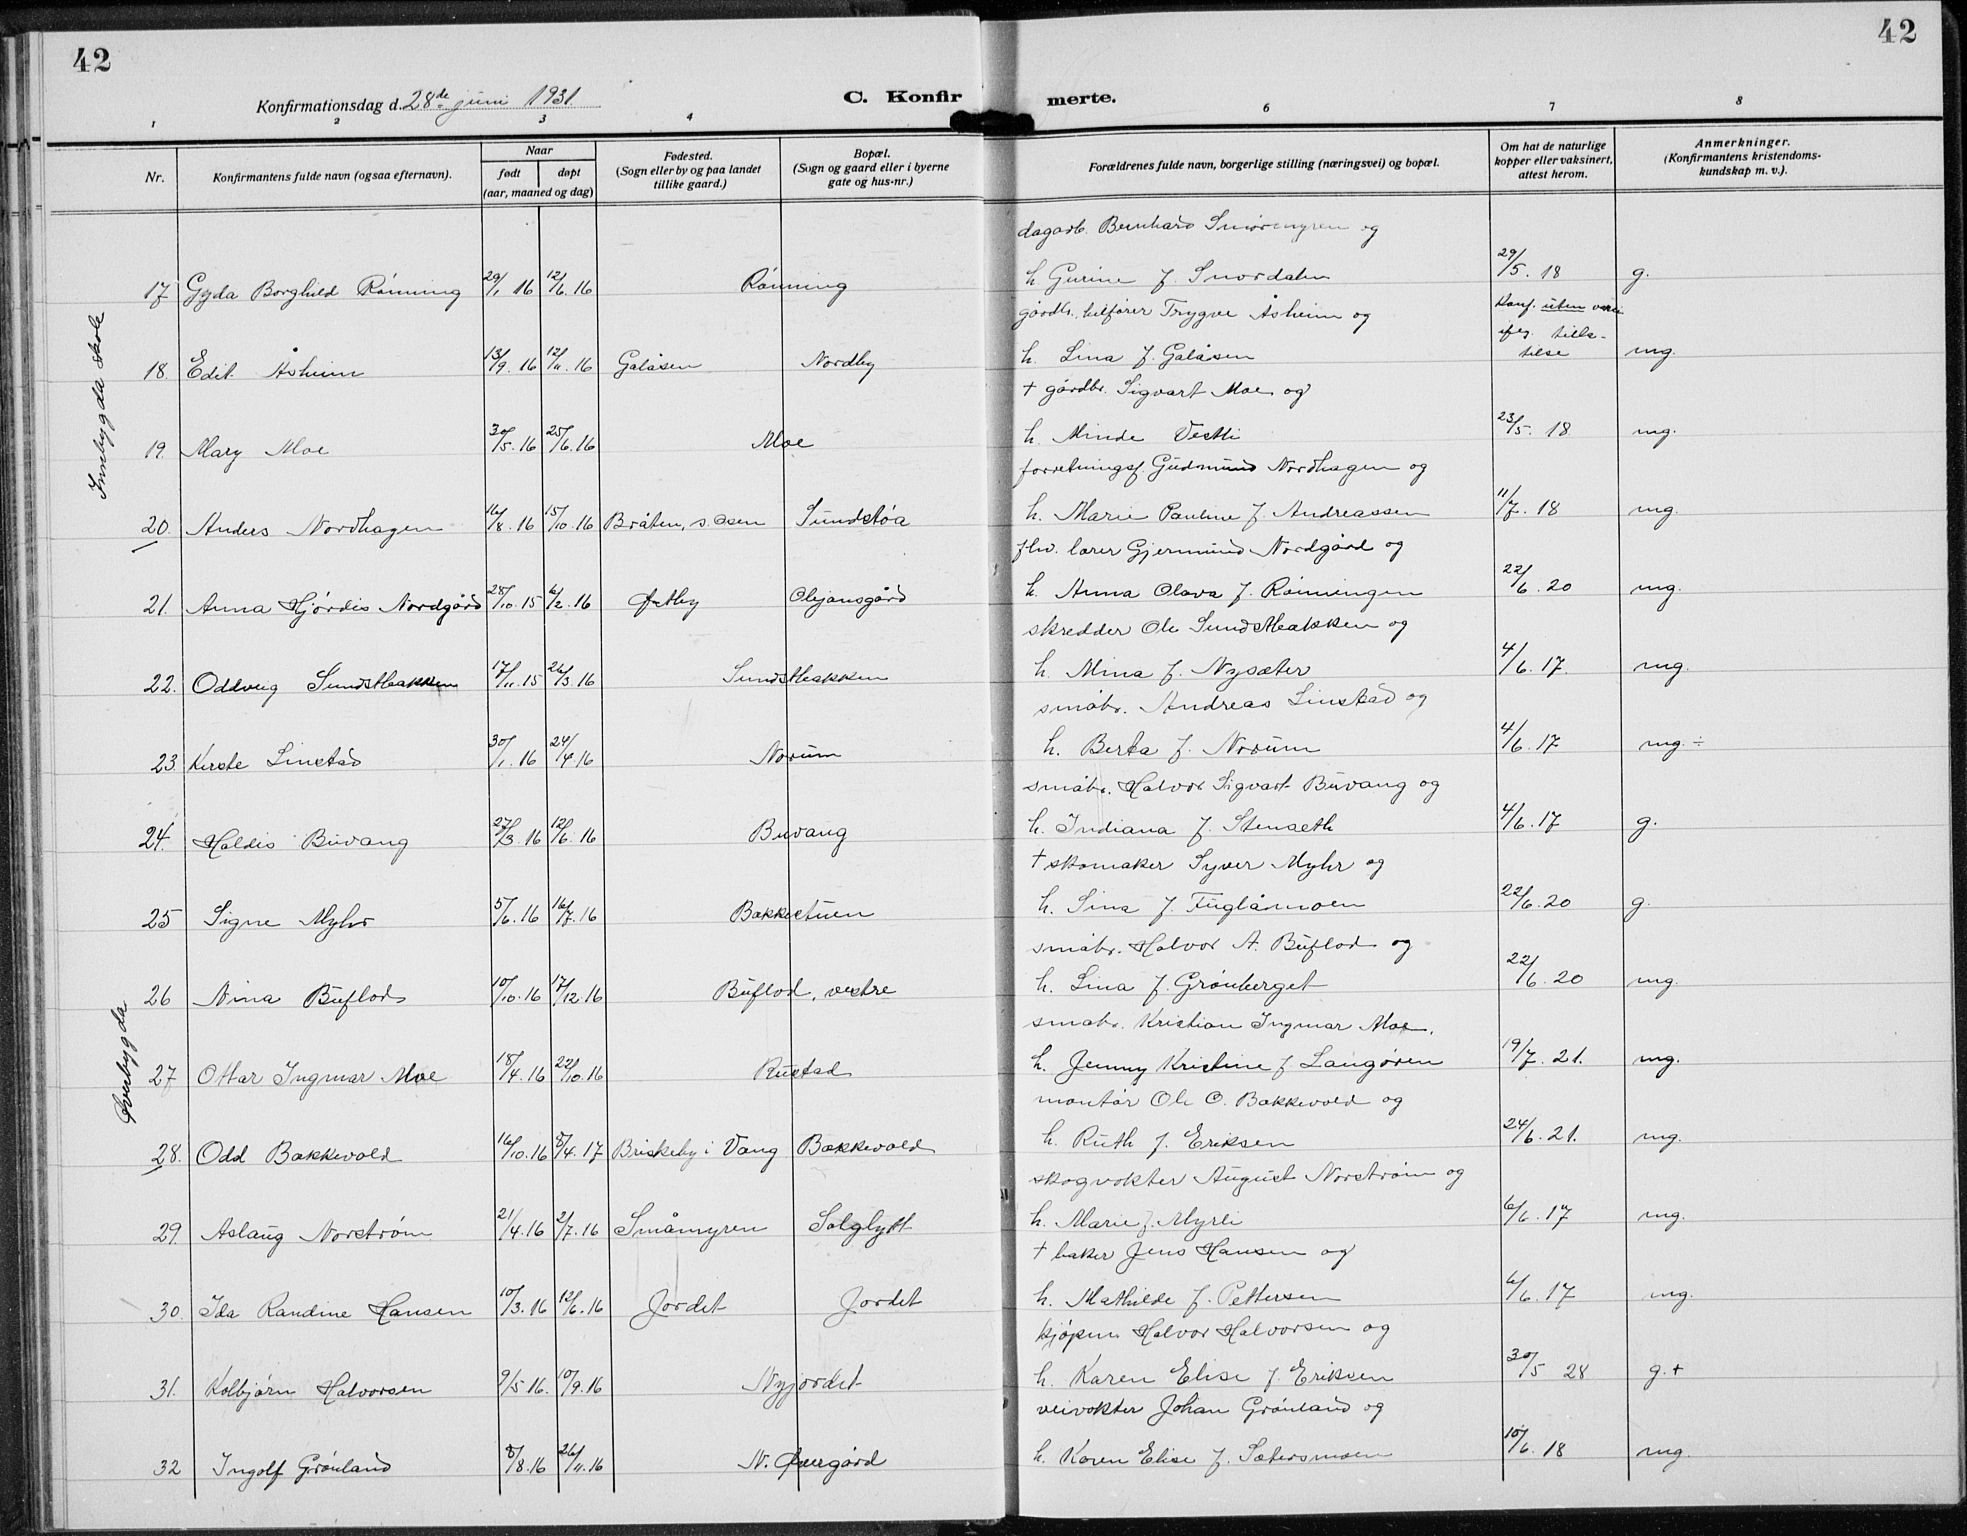 42
42
Konfirmationsdag d. 28de juni 1931
C. Konfirmerte.
1 2 3 4 6 7 8
Nr.
Konfirmantens fulde navn (ogsaa efternavn).
Naar
født døpt
(aar, maaned og dag)
Fødested.
(Sogn eller by og paa landet
tillike gaard.)
Bopæl.
(Sogn og gaard eller i byerne
gate og hus-nr.)
Forældrenes fulde navn, borgerlige stilling (næringsvei) og bopæl.
Om hat de naturlige
kopper eller vaksinert,
attest herom.
Anmerkninger.
(Konfirmantens kristendoms-
kundskap m. v.).
Innbygda skole
dagarb. Bernhard Smøremyren og
17 Gyda Borghild Rønning 29/1 16 12/6. 16 Rønning h Gurine f. Snordalen 29/5. 18 g.
gårdbr. Trygve Åsheim og Konf. uten
18. Edit Åsheim 13/9. 16 12/11. 16 Galåsen Nordby h. Lina f. Galåsen mg.
+ gårdbr. Sigvart Moe og
19. Mary Moe 30/5. 16 25/6. 16 Moe h. Minde Vestli 23/5. 18 mg.
forretningsf. Gudmund Nordhagen og
20. Anders Nordhagen 16/8. 16 15/10. 16 Bråten, s. Osen Sundstøa h. Marie Pauline f. Andreassen 11/7. 18 mg.
fhv. lærer Gjermund Nordgård og
21. Anna Hjørdis Nordgård 28/10. 15 6/2. 16 Østby Olejansgård h. Anna Olava f. Rønningen 22/6. 20 mg.
skredder Ole Sundstbakken og
22. Oddveig Sundstbakken 17/11. 15 26/3. 16 Sundstbakken h. Mina f. Nysæter 4/6. 17. mg.
småbr. Andreas Linstad og
23. Kirste Linstad 30/1. 16 24/4 16 Norum h. Berta f. Norum 4/6. 17 mg. ÷
småbr. Halvor Sigvart Buvang og
24. Haldis Buvang 27/3. 16 12/6. 16 Buvang h. Indiana f. Stenseth 4/6. 17 g.
+ skomaker Syver Myhr og
25 Signe Myhr 5/6. 16 16/7. 16 Bakkestuen h. Lina f. Fuglåmoen 22/6. 20 g.
Øverbygda
småbr. Halvor A. Buflod og
26 Nina Buflod 10/10. 16 17/12 16 Buflod, vestre h. Lina f. Grønberget 22/6. 20 mg.
småbr. Kristian Ingmar Moe.
27 Ottar Ingmar Moe 18/4. 16 22/10. 16 Rustad h. Jenny Kristine f Langøren 19/7. 21. mg.
montør Ole O. Bakkevold og
28. Odd Bakkevold 16/10. 16 8/4. 17 Briskeby i Vang Bakkevold h. Ruth f. Eriksen 24/6. 21. mg.
skogvokter August Norstrøm og
29. Aslaug Norstrøm 21/4. 16 2/7. 16 Småmyren Solglytt h. Marie f. Myrli 6/6. 17 mg.
+ baker Jens Hansen og
30. Ida Randine Hansen 10/3. 16 12/6. 16 Jordet Jordet h. Mathilde f. Pettersen 6/6. 17 mg.
kjøpm. Halvor Halvorsen og
31. Kolbjørn Halvorsen 9/5. 16. 10/9. 16 Nyjordet h. Karen Elise f. Eriksen 30/5 28 g. +
veivokter Johan Grønland og
32 Ingolf Grønland 8/8. 16 26/11. 16 N. Øvergård h. Karen Elise f. Sætersmoen 10/6. 18 mg.